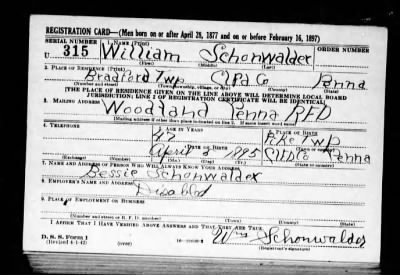 REGISTRATION CARD—(Men born on or after April 28, 1877 and on or before February 16, 1897)
SERIAL NUMBER 1. NAME (Print) ORDER NUMBER
U 315 William Schonwalder
(First) (Middle) (Last)
2. PLACE OF RESIDENCE (Print)
Bradford Twp Clfd Co Penna
(Number and street) (Town, township, village, or city) (County) (State)
[THE PLACE OF RESIDENCE GIVEN ON THE LINE ABOVE WILL DETERMINE LOCAL BOARD
JURISDICTION; LINE 2 OF REGISTRATION CERTIFICATE WILL BE IDENTICAL]
3. MAILING ADDRESS
Woodland Penna RFD
[Mailing address if other than place indicated on line 2. If same insert word same]
4. TELEPHONE 5. AGE IN YEARS 6. PLACE OF BIRTH
Pike Twp
(Town or county)
DATE OF BIRTH
April 3 1895 Clfd Co Penna
(Exchange) (Number) (Mo.) (Day) (Yr.) (State or country)
7. NAME AND ADDRESS OF PERSON WHO WILL ALWAYS KNOW YOUR ADDRESS
Bessie Schonwalder
8. EMPLOYER'S NAME AND ADDRESS
Disabled
9. PLACE OF EMPLOYMENT OR BUSINESS
(Number and street or R. F. D. number) (Town) (County) (State)
I AFFIRM THAT I HAVE VERIFIED ABOVE ANSWERS AND THAT THEY ARE TRUE.
D. S. S. Form 1
(Revised 4-1-42) (over)
Wm Schonwalder